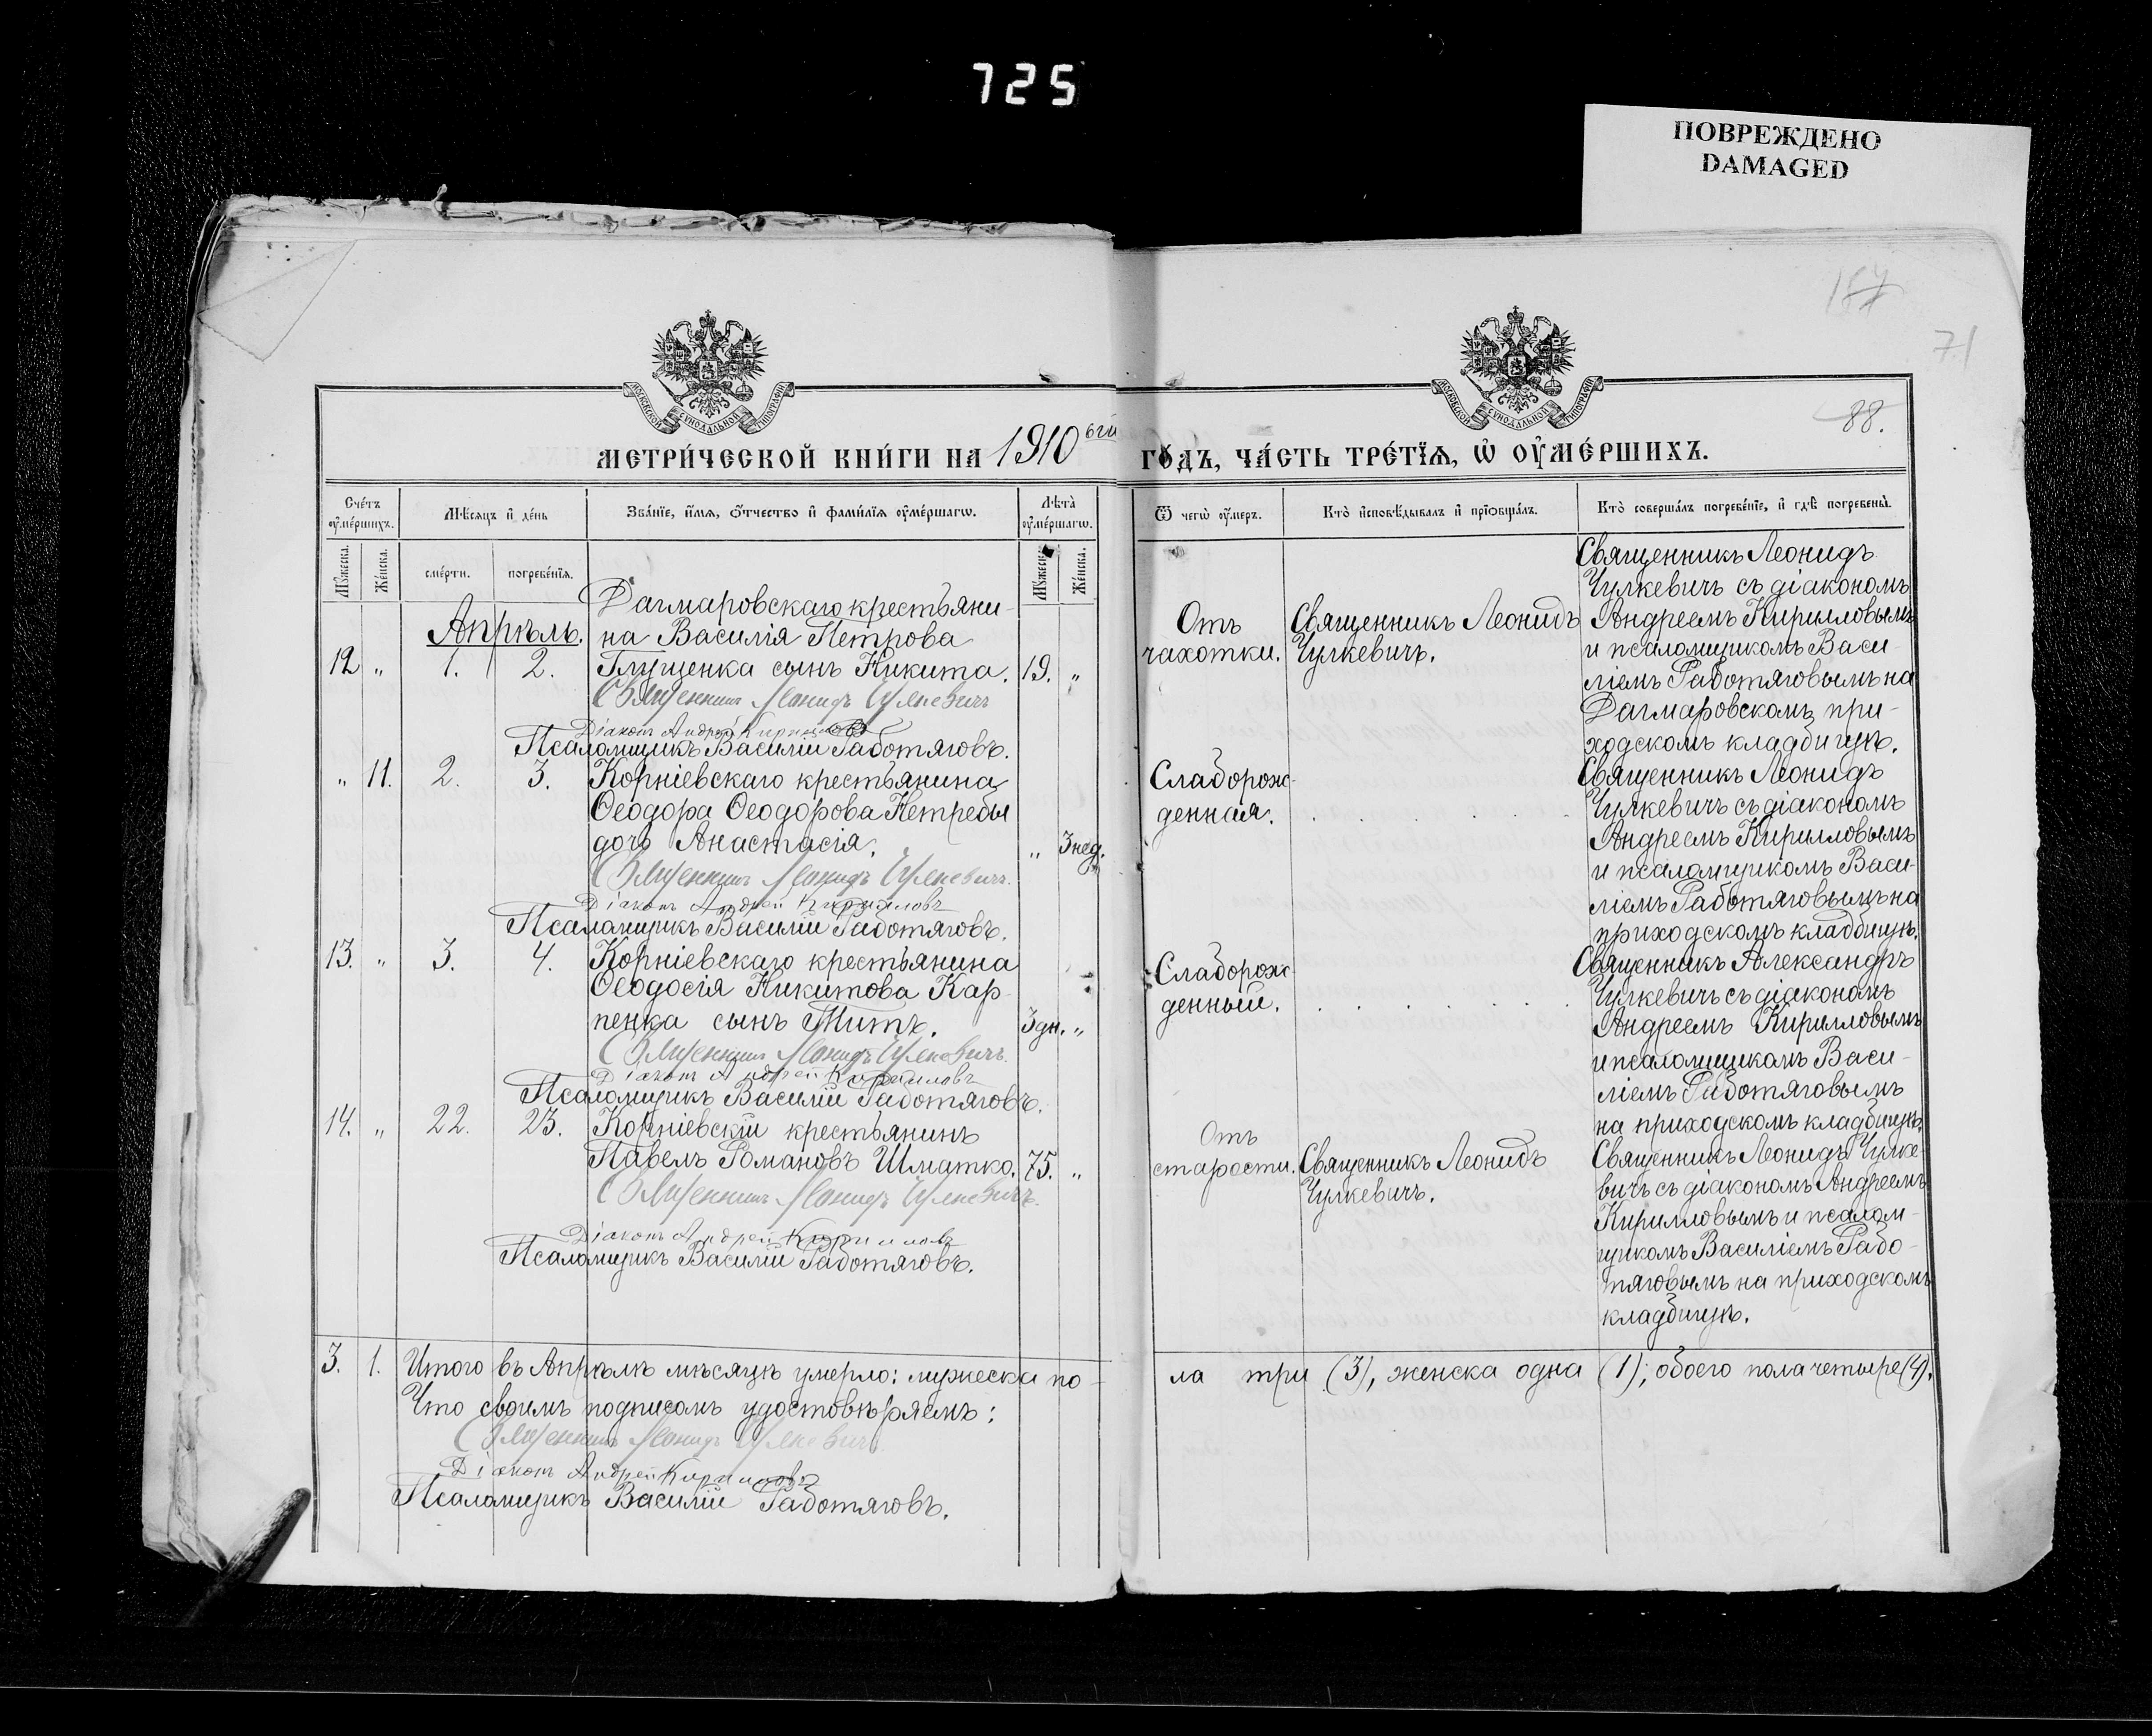 725
ПОВРЕЖДЕНО
DAMAGED
71
88.
МОСКОВСКОЙ СУНОДАЛЬНОЙ ТИПОГРАФІИ
МОСКОВСКОЙ СУНОДАЛЬНОЙ ТИПОГРАФІИ
МЕТРИ́ЧЕСКОЙ КНИ́ГИ НА 1910
ГО́ДЪ, ЧА́СТЬ ТРЕ́ТЇѦ, Ѡ҆ ОУ҆МЕ́РШИХЪ.
Сче́тъ оу҆ме́ршихъ.
Мѣ́сяцъ и҆ де́нь
Зва́нїе, и҆́мя, ѻ҆́тчество и҆ фами́лїя оу҆ме́ршагѡ.
Лѣ́та оу҆ме́ршагѡ.
Ѿ чегѡ̀ оу҆́меръ.
Кто̀ и҆сповѣ́дывалъ и҆ прїѡбща́лъ.
Кто̀ соверша́лъ погребе́нїе, и҆ гдѣ̀ погребены̀.
Мꙋ́жеска.
Же́нска.
сме́рти.
погребе́нїя.
Мꙋ́жеска.
Же́нска.
Апрѣль.
12 „ 1. 2.
Дагмаровскаго крестьяни-
на Василія Петрова
Глущенка сынъ Никита. 19. „
Священникъ Леонидъ Чулкевичъ
Діаконъ Андрей Кирилловъ
Псаломщикъ Василій Работяговъ.
Отъ
чахотки.
Священникъ Леонидъ
Чулкевичъ.
Священникъ Леонидъ
Чулкевичъ съ діакономъ
Андреемъ Кирилловымъ
и псаломщикомъ Васи-
ліемъ Работяговымъ на
Дагмаровскомъ при-
ходскомъ кладбищѣ.
„ 11. 2. 3.
Корніевскаго крестьянина
Ѳеодора Ѳеодорова Нетребы
дочь Анастасія. „ 3 нед.
Священникъ Леонидъ Чулкевичъ.
Діаконъ Андрей Кирилловъ
Псаломщикъ Василій Работяговъ.
Слаборож-
денная.
Священникъ Леонидъ
Чулкевичъ съ діакономъ
Андреемъ Кирилловымъ
и псаломщикомъ Васи-
ліемъ Работяговымъ на
приходскомъ кладбищѣ.
13. „ 3. 4.
Корніевскаго крестьянина
Ѳеодосія Никитова Кар-
пенка сынъ Титъ. 3 дн. „
Священникъ Леонидъ Чулкевичъ.
Діаконъ Андрей Кирилловъ
Псаломщикъ Василій Работяговъ.
Слаборож-
денный.
Священникъ Александръ
Чулкевичъ съ діакономъ
Андреемъ Кирилловымъ
и псаломщикомъ Васи-
ліемъ Работяговымъ
на приходскомъ кладбищѣ.
14. „ 22. 23.
Корніевскій крестьянинъ
Павелъ Романовъ Шматко. 75. „
Священникъ Леонидъ Чулкевичъ.
Діаконъ Андрей Кирилловъ
Псаломщикъ Василій Работяговъ.
Отъ
старости.
Священникъ Леонидъ
Чулкевичъ.
Священникъ Леонидъ Чулке-
вичъ съ діакономъ Андреемъ
Кирилловымъ и псалом-
щикомъ Василіемъ Рабо-
тяговымъ на приходскомъ
кладбищѣ.
3. 1. Итого въ Апрѣлѣ мѣсяцѣ умерло: мужеска по-
ла три (3), женска одна (1); обоего пола четыре (4).
Что своимъ подписомъ удостовѣряемъ:
Священникъ Леонидъ Чулкевичъ.
Діаконъ Андрей Кирилловъ
Псаломщикъ Василій Работяговъ.